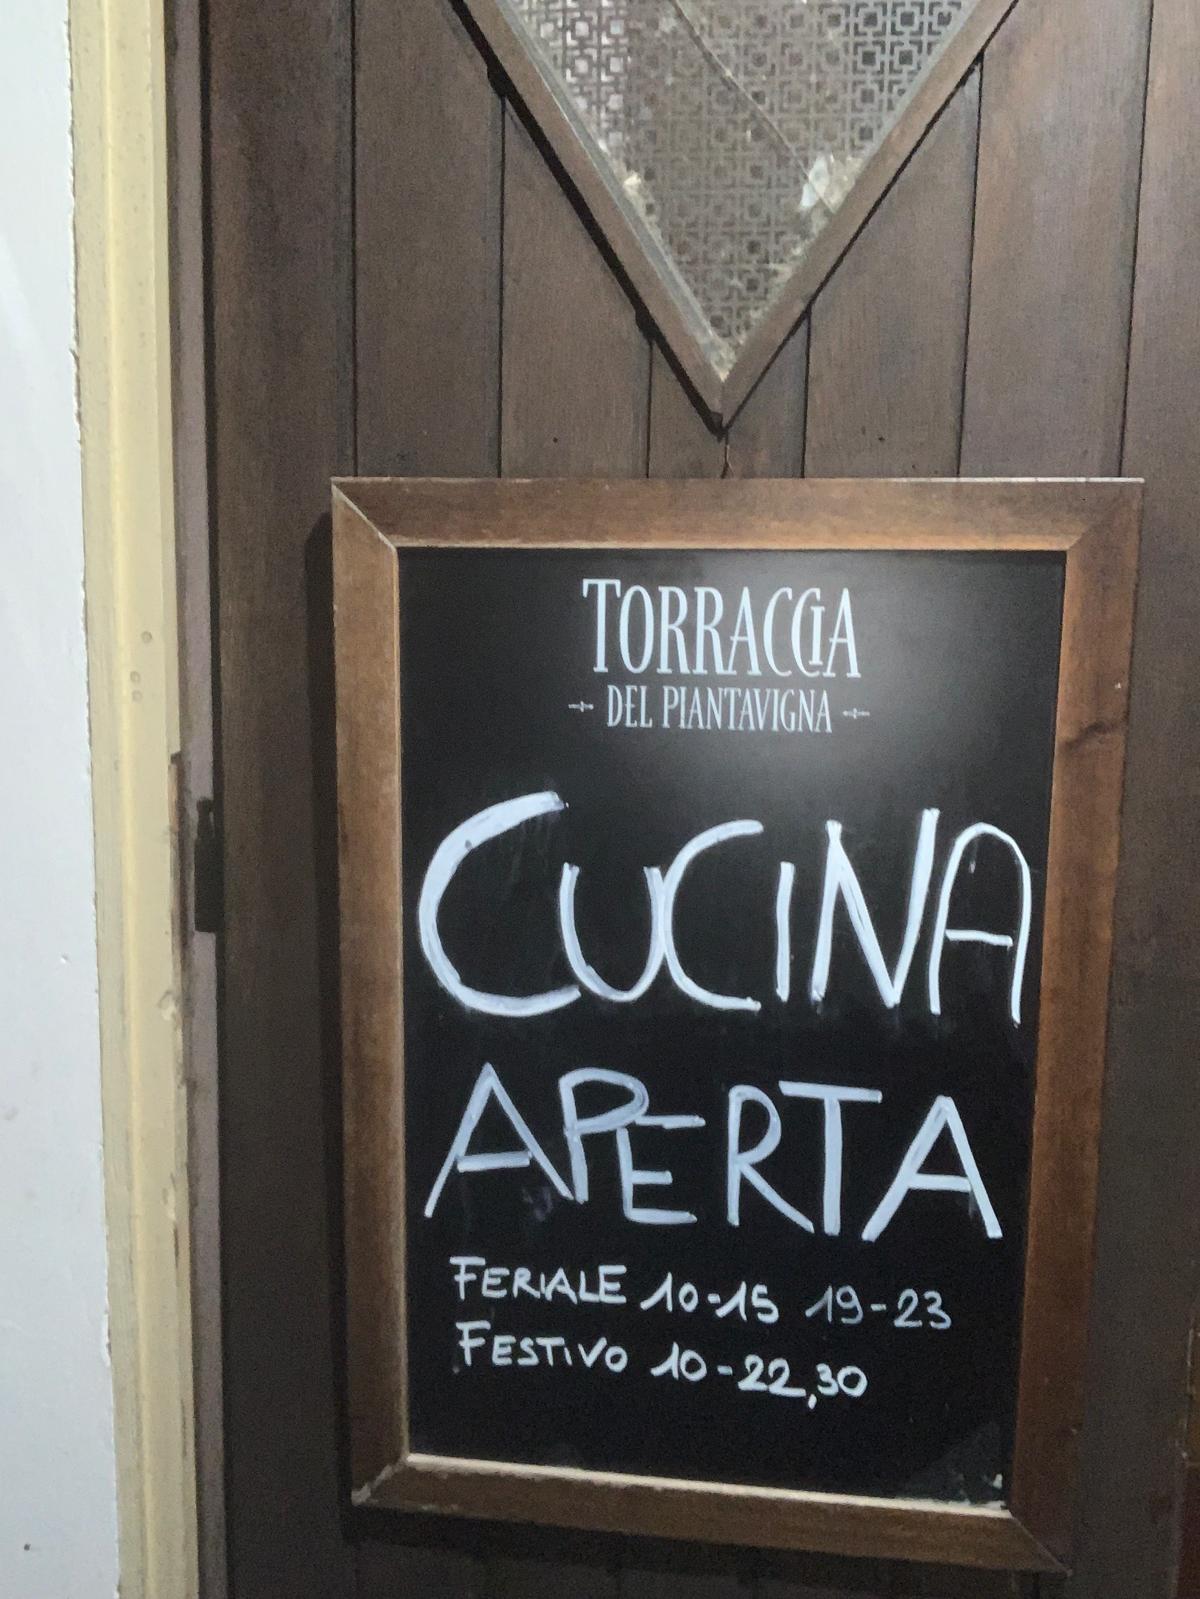 TORRACCIA
DEL PIANTAVIGNA
CUCINA
APERTA
FERIALE 10-15 19-23
FESTIVO 10-22,30